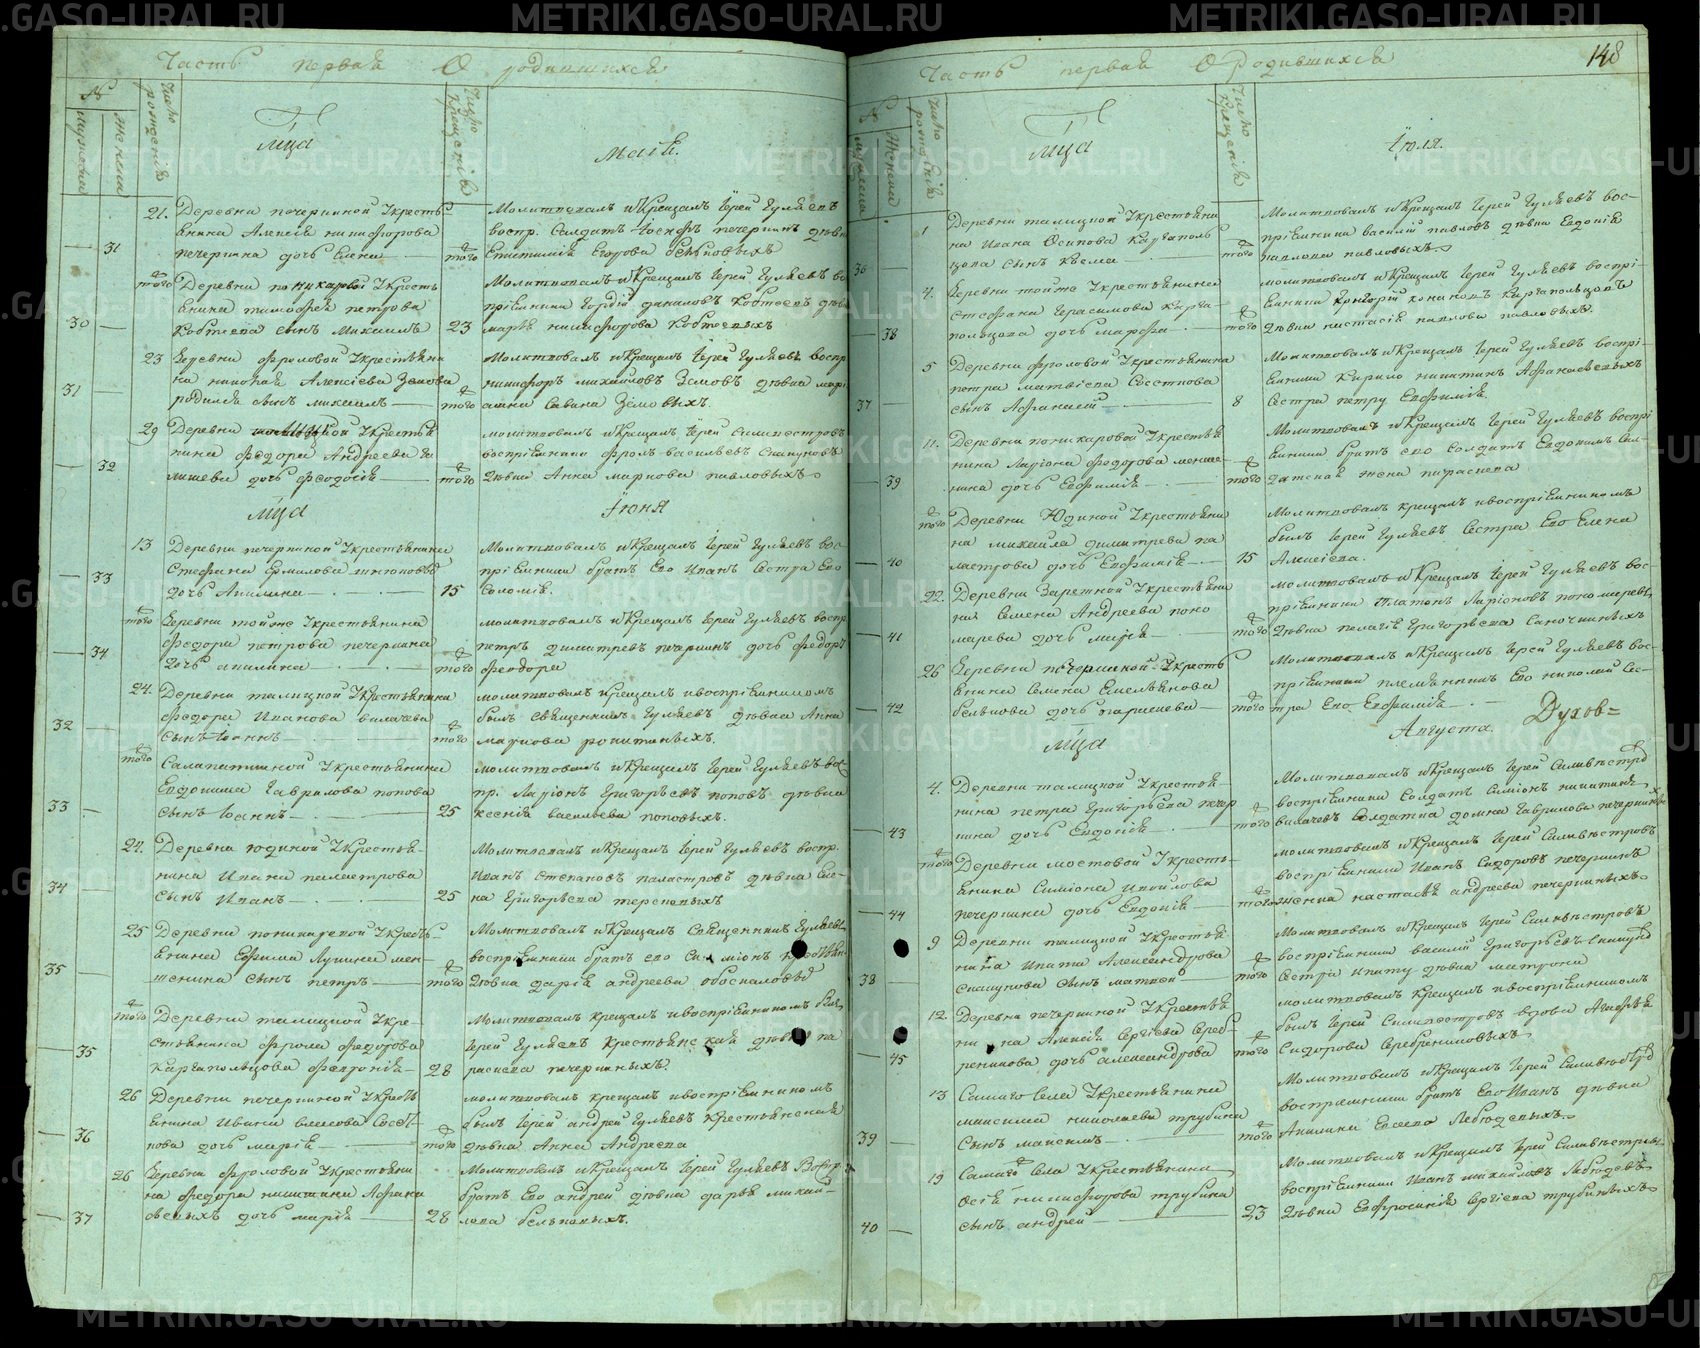 Часть первая О родившихся
№
мужеска
женска
Число рождения
Мца
Число крещения
Маія.
21. Деревни печеркиной Укресть
янина Алексія никифорова
31 печеркина дочь Елена
того
Молитвовалъ и Крещалъ Іерей Гуляевъ
воспр. Солдатъ Іосифъ печеркинъ девка
Епистимія Егорова бѣльковыхъ
того Деревни поникаровой Укресть
янина тимофея петрова
30 Коптева сынъ Михаилъ 23
Молитвовалъ и Крещалъ Іерей Гуляевъ во
марья никифорова Коптевыхъ
23 Деревни фроловой Укрестьяни
на николая Алексіева Земова
31 родился сынъ михаилъ
того
Молитвовалъ и Крещалъ Іерей Гуляевъ воспр
никифоръ михайловъ Земовъ девка мари
амна Савина Земовыхъ.
29 Деревни Укрестья
нина федора Андреева
32 дочь феодосія
того
молитвовалъ и Крещалъ Іерей Силивестровъ
воспріемники фролъ васильевъ
девка Анна маркова павловыхъ
Мца
Іюня
13 Деревни печеркиной Укрестьянина
33 Стефана Ермилова
дочь Акилина 15
Молитвовалъ и Крещалъ Іерей Гуляевъ вос
пріемники братъ Его Иванъ Сестра Его
Соломія.
того Деревни тойже Укрестьянина
федора петрова печеркина
34 дочь акилина
того
молитвовалъ и Крещалъ Іерей Гуляевъ воспр
петръ димитревъ печеркинъ дочь федора
феодора
24. Деревни талицкой Укрестьянина
федора Иванова вилачева
32 Сынъ Іоаннъ
того
молитвовалъ крещалъ и воспріемникомъ
былъ священникъ Гуляевъ девка Анна
маркова
того Укрестьянина
Евдокима Гаврилова попова
33 Сынъ Іоаннъ 25
молитвовалъ и Крещалъ Іерей Гуляевъ вос
пр. Ларіонъ Григорьевъ поповъ девка
ксенія васильева поповыхъ.
24. Деревни юдиной Укрестья
нина Ивана паластрова
34 Сынъ Иванъ 25
Молитвовалъ и Крещалъ Іерей Гуляевъ воспр.
Иванъ Степановъ паластровъ девка Еле
на Григорьева
25 Деревни поникаровой Укресть
янина Ефима Лукина мен
35 шенина сынъ петръ
того
Молитвовалъ и Крещалъ Священникъ Гуляевъ
воспріемники братъ его Симіонъ
девка дарія андреева
того Деревни талицкой Укре
стьянина фрола федорова
35 Каргапольцова феврония 28
Молитвовалъ крещалъ и воспріемникомъ былъ
Іерей Гуляевъ крестьянская девка па
раскева печеркиныхъ.
26 Деревни печеркиной Укресть
янина Ивана
36 нова дочь марія
того
молитвовалъ крещалъ и воспріемникомъ
былъ Іерей андрей Гуляевъ Крестьянская
девка Анна Андреева
26 Деревни фроловой Укрестьяни
на федора никитина Афана
37 сьевыхъ дочь марія 28
Молитвовалъ и Крещалъ Іерей Гуляевъ Воспр
братъ Его андрей девка дарья михай
лова бѣльковыхъ.
148
Часть первая О родившихся
№
мужеска
Женска
Число рождения
Мца
Число крещения
Іюля.
1 Деревни талицкой Укрестьяни
на Ивана Осипова Каргаполь
36 цова сынъ Косма
того
Молитвовалъ и Крещалъ Іерей Гуляевъ вос
пріемники василій павловъ девка Евдокія
павлова павловыхъ.
4. Деревни тойже Укрестьянина
Стефана Герасимова Карга
38 польцова дочь марфа
того
молитвовалъ и Крещалъ Іерей Гуляевъ воспрі
емники Григорій кононовъ Каргапольцовъ
девка настасія павлова павловыхъ.
5 Деревни фроловой Укрестьянина
петра матвіева
37 сынъ Афанасей 8
Молитвовалъ и Крещалъ Іерей Гуляевъ воспрі
емники Кирило никитинъ Афанасьевыхъ
Сестра петру Евфимія.
11. Деревни поникаровой Укрестья
нина Ларіона федорова менше
39 нина дочь Евфимія
того
Молитвовалъ и Крещалъ Іерей Гуляевъ воспрі
емники братъ его солдатъ Евдокимъ сол
датская жена параскева
того Деревни Юдиной Укрестьяни
на михаила димитрева па
40 ластрова дочь Евфимія 15
Молитвовалъ крещалъ и воспріемникомъ
былъ Іерей Гуляевъ Сестра Его Елена
Алексіева.
22. Деревни Заречной Укрестьяни
на семена Андреева поно
41 марева дочь марія
того
молитвовалъ и Крещалъ Іерей Гуляевъ вос
пріемники Платонъ Ларіоновъ пономаревъ
девка пелагія Григорьева
26 Деревни печеркиной Укресть
янина Семена Емельянова
42 бѣлькова дочь парасковья
того
Молитвовалъ и Крещалъ Іерей Гуляевъ вос
пріемники племянникъ Его николай Сес
тра Его Евфимія.
Мца
Августа.
Духов=
4. Деревни талицкой Укрестья
нина петра Григорьева печер
43 кина дочь Евдокія
того
Молитвовалъ и Крещалъ Іерей Силивестровъ
воспріемники Солдатъ Симіонъ никитинъ
вилачевъ Солдатка домна Гаврилова печеркиныхъ
того Деревни мостовой Укресть
янина Симіона
44 печеркина дочь Евдокія
того
молитвовалъ и Крещалъ Іерей Силивестровъ
воспріемники Иванъ Сидоровъ печеркинъ
женка настасья андреева печеркиныхъ
9 Деревни талицкой Укрестья
нина Ипата Александрова
38 сынъ матвей
того
Молитвовалъ и Крещалъ Іерей Силивестровъ
воспріемники василій Григорьевъ
Сестра Ипату девка матрона
12. Деревни печеркиной Укрестья
нина Алексія Сергіева Сереб
45 реникова дочь александрова
того
молитвовалъ крещалъ и воспріемникомъ
былъ Іерей Силивестровъ вдова Агафья
Сидорова Серебрениковыхъ
13 Самаго села Укрестьянина
максима николаева трубина
39 Сынъ максимъ
того
Молитвовалъ и Крещалъ Іерей Силивестровъ
воспріемники братъ Его Иванъ девка
Акилина Евсеева Лебедевыхъ.
19 Самаго села Укрестьянина
Осія никифорова трубина
40 сынъ андрей 23
Молитвовалъ и Крещалъ Іерей Силивестровъ
воспріемники Иванъ михайловъ Лебедевъ
девка Евфросинія Сергіева трубиныхъ